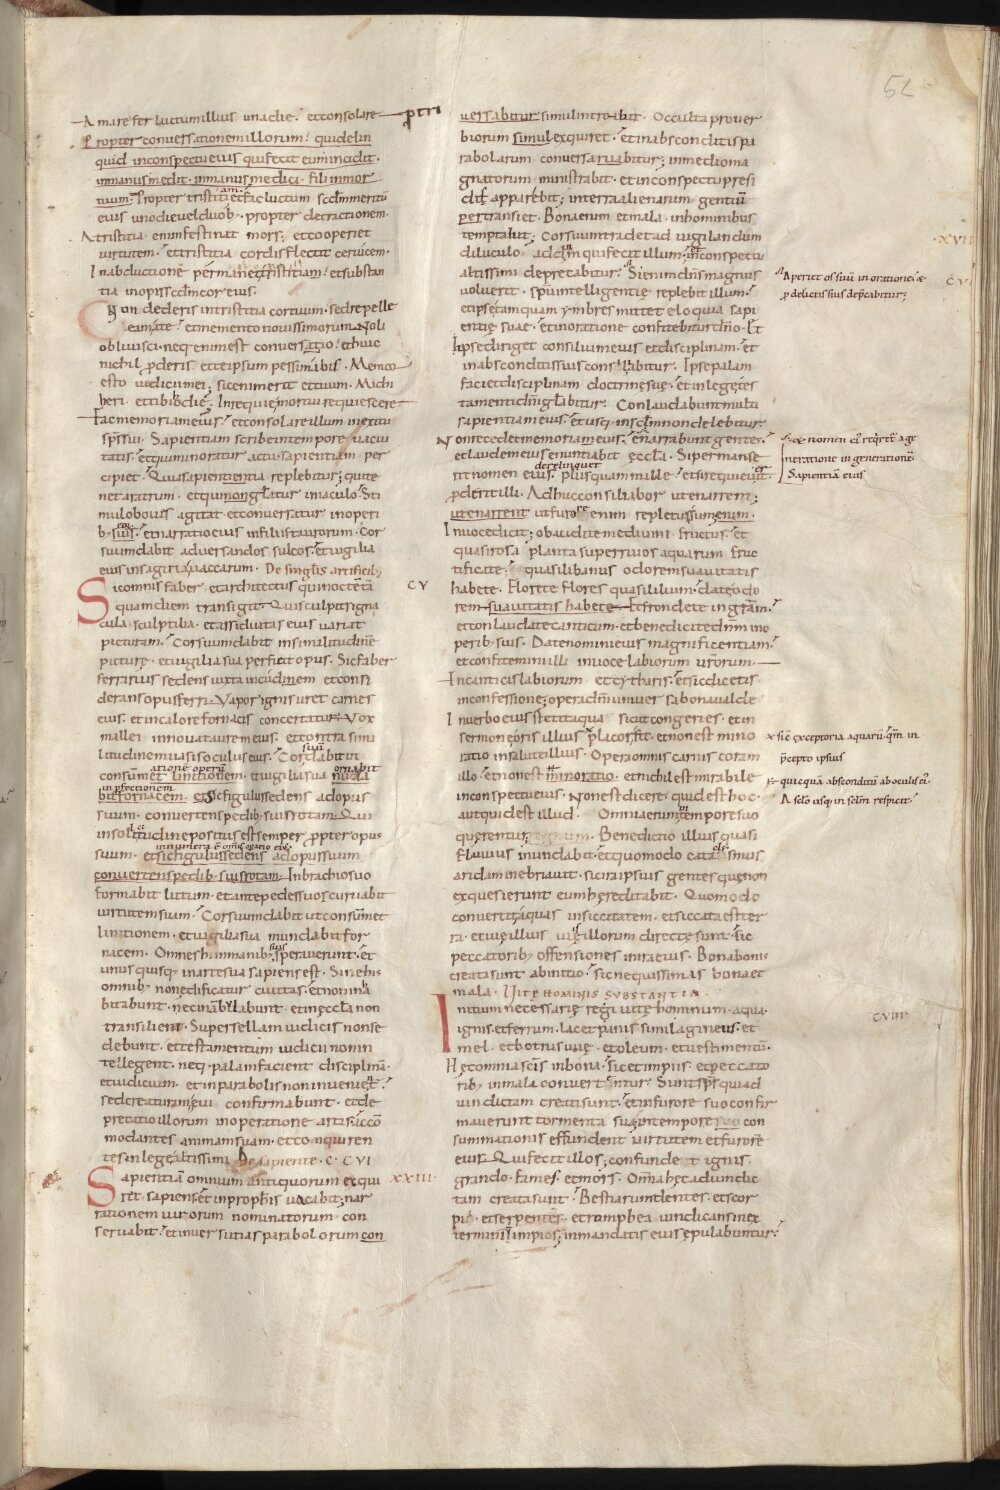 52
Amare fer luctum illius una die et consolare
propter conversationem illorum qui delin
quid in conspectu eius qui fecit eum incidit
in manus medici fili in mor
tuum Propter tristitiam et fac luctum scdm meritu
eius uno die vel duob propter detractionem
A tristitia enim festinat mors et cooperiet
virtutem et tristitia cordis flectit cervicem
In abductione permanet tristitiam et substan
tia inopis scdm cor eius
Non dederis in tristitia cor tuum sed repelle
eam a te et memento novissimorum Noli
oblivisci neq enim est conversatio et huic
nichil pderis et te ipsum pessimabis Memor
esto iudicii mei sic enim erit et tuum Michi
heri et tibi hodie In requie mortui requiescere
fac memoriam eius et consolare illum in exitu
sps sui Sapientiam scribe in tempore vacui
tatis et qui minoratur actu sapientiam per
cipiet Qua sapientia replebitur qui te
net aratrum et qui in iaculo Sti
mulo boves agitat et conversatur in operi
b suis et narratio eius in filiis taurorum Cor
suum dabit ad versandos sulcos et vigilia
eius in sagina vaccarum De singlis artificib
CV
Sic omnis faber et architectus qui noctem ta
quam diem transigit Qui sculpit signa
cula sculptilia et assiduitas eius variat
picturam Cor suum dabit in similitudine
picture et vigilia sua perficit opus Sic faber
ferrarius sedens iuxta incudinem et consi
derans opus ferri Vapor ignis uret carnes
eius et in calore fornacis concertatur Vox
mallei innovat aurem eius et contra simi
litudinem vasis oculus eius Cor dabit in
consummatione operu et vigilia sua ornabit
in pfectionem Sic figulus sedens ad opus
suum convertens pedib suis rotam Qui
in sollicitudine positus est semper ppter opus
suum et sic figulus sedens ad opus suum
convertens pedib suis rotam In brachio suo
formabit lutum et ante pedes suos curvabit
virtutem suam Cor suum dabit ut consumet
linitionem et vigilia sua mundabit for
nacem Omnes hi in manib suis speraverunt et
unus quisq in arte sua sapiens est Sine his
omnib non edificatur civitas et non inha
bitabunt nec inambulabunt et in eccla non
transilient Super sellam iudicis non se
debunt et testamentum iudicii non in
tellegent neq palam facient disciplina
et iudicium et in parabolis non invenient
sed creaturam evi confirmabunt et de
precatio illorum in operatione artis accō
modantes animam suam et conquiren
tes in lege altissimi De sapiente C CVI
XXIII
Sapientiam omnium antiquorum exqui
ret sapiens et in prophis vacabit nar
rationem virorum nominatorum con
servabit et in versutias parabolorum con
versabitur simul introibit Occulta prover
biorum simul exquiret et in absconditis pa
rabolarum conversabitur in medio ma
gnatorum ministrabit et in conspectu presi
dis apparebit in terra alienarum gentiu
pertransiet Bona enim et mala in hominibus
temptabit Cor suum tradet ad vigilandum
diluculo ad dnm qui fecit illum in conspectu
altissimi deprecabitur Si enim dns magnus
voluerit spu intelligentie replebit illum
et ipse tamquam ymbres mittet eloquia sapi
entie suae et in oratione confitebitur dno Et
ipse diriget consilium eius et disciplinam et
in absconditis suis consiliabitur Ipse palam
faciet disciplinam doctrine sue et in lege tes
tamenti dni glabitur Conlaudabunt multi
sapientiam eius et usq in sclm non delebitur
Non recedet memoria eius enarrabunt gentes
et laudem eius enuntiabit eccla Si permanse
rit nomen derelinquet plus quam mille et si requieverit
pderit illi Adhuc consiliabor ut enarrem
ut enarrent ut furore enim repletus sum enim
In voce dicit obaudite me divini fructus et
quasi rosa planta super rivos aquarum fruc
tificate quasi libanus odorem suavitatis
habete Florete flores quasi lilium date odo
rem suavitatis habete Et frondete in gram
et conlaudate canticum et benedicite dnm in o
perib suis Date nomini eius magnificentiam
et confitemini illi in voce labiorum vrorum
In canticis labiorum et cytharis et sic dicetis
in confessione opera dni universa bona valde
In verbo eius stetit aqua sicut congeries et in
sermone oris illius placor fit et non est mino
ratio in salute illius Opera omnis carnis coram
illo et non est minoratio et nichil est mirabile
in conspectu eius Non est dicere quid est hoc
aut quid est illud Omnia enim in tempore suo
querentur Benedictio illius quasi
fluvius inundabit et quomodo cataclismus
aridam inebriavit sic ira ipsius gentes que non
exquesierunt eum hereditabit Quomodo
convertit aquas in siccitatem et siccata est ter
ra et vie illius viis illorum directe sunt sic
peccatorib offensiones in ira eius Bona bonis
creata sunt ab initio sic nequissimis bona et
mala Vite hominis substantia
Initium necessarie rei vite hominum aqua
ignis et ferrum lac et panis similagineus et
mel et botrus uve et oleum et vestimentu
Hec omnia scis in bona sic et impiis et peccato
rib in mala convertentur Sunt sps qui ad
vindictam creati sunt et in furore suo confir
maverunt tormenta sua in tempore con
summationis effundent virtutem et furore
eius Qui fecit illos confundet ignis
grando fames et mors Omia hec ad vindic
tam creata sunt Bestiarum dentes et scor
pii et serpentes et romphea vindicans in ex
terminiu impios in mandatis eius epulabuntur
XVII
Aperiet os suu in oratione
p delictis suis depcabitur
CVI
et nomen ei requiret a ge
neratione in generatione
Sapientia eius
sic exceptoria aquaru qm in
pcepto ipsius
quicquā absconditū ab oculis ei
A sclo usq in sclm respicit
CVIII